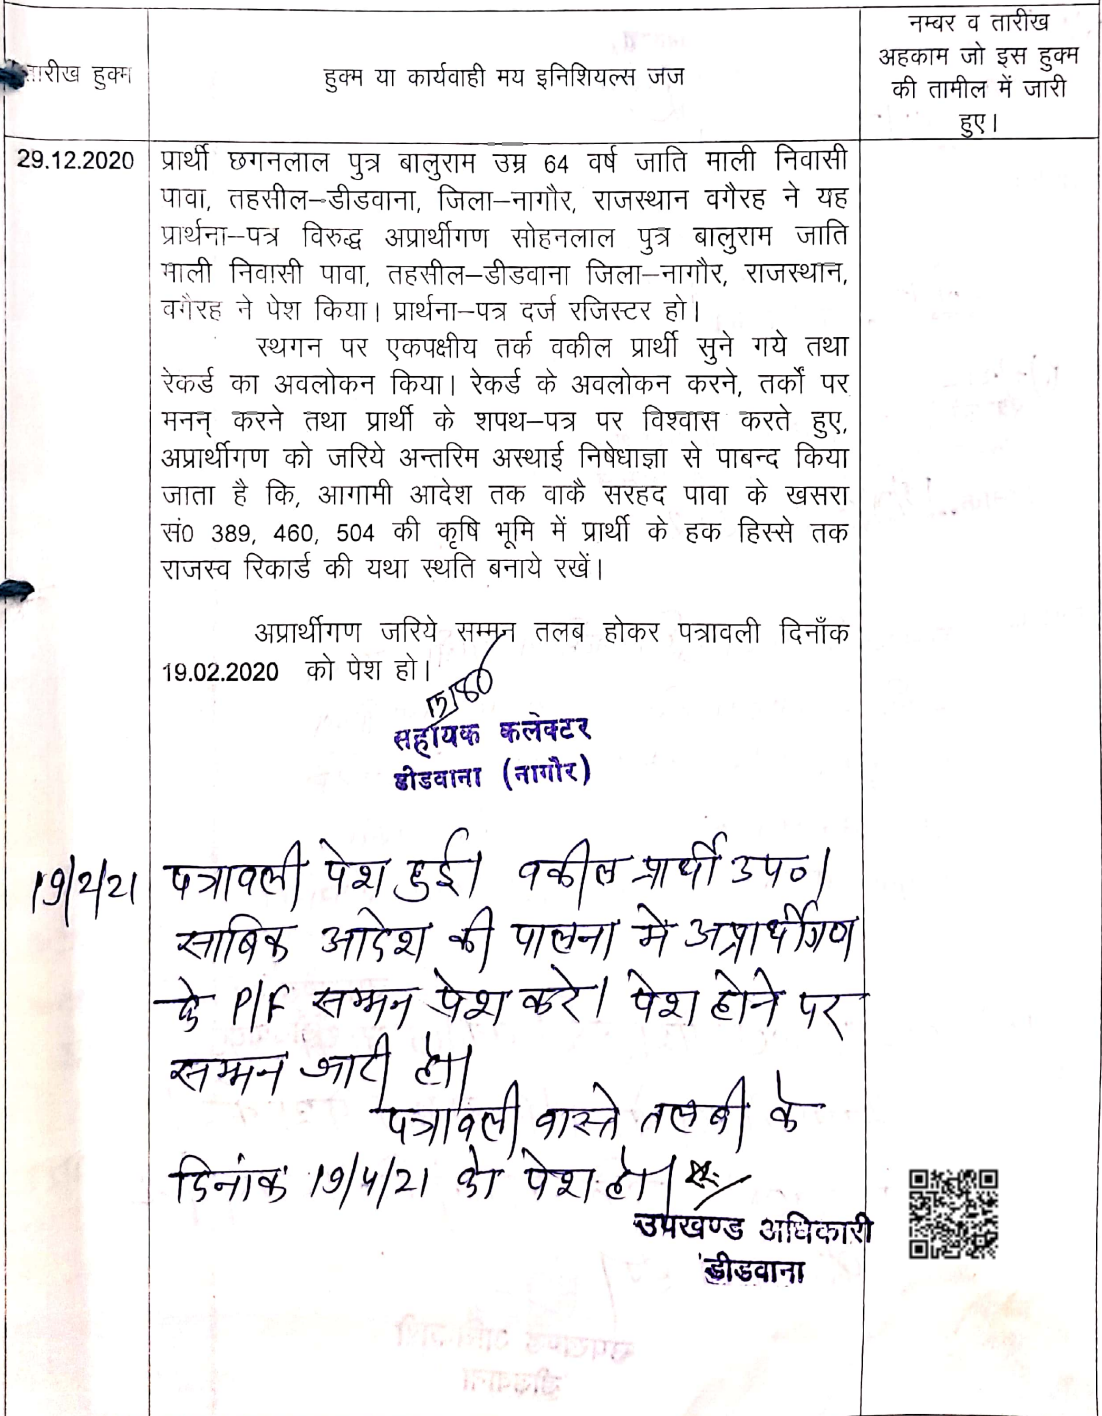 तारीख हुक्म
हुक्म या कार्यवाही मय इनिशियल्स जज
नम्बर व तारीख
अहकाम जो इस हुक्म
की तामील में जारी
हुए।
29.12.2020
प्रार्थी छगनलाल पुत्र बालुराम उम्र 64 वर्ष जाति माली निवासी
पावा, तहसील–डीडवाना, जिला–नागौर, राजस्थान वगैरह ने यह
प्रार्थना–पत्र विरुद्ध अप्रार्थीगण सोहनलाल पुत्र बालुराम जाति
माली निवासी पावा, तहसील–डीडवाना जिला–नागौर, राजस्थान,
वगैरह ने पेश किया। प्रार्थना–पत्र दर्ज रजिस्टर हो।
स्थगन पर एकपक्षीय तर्क वकील प्रार्थी सुने गये तथा
रेकर्ड का अवलोकन किया। रेकर्ड के अवलोकन करने, तर्कों पर
मनन् करने तथा प्रार्थी के शपथ–पत्र पर विश्वास करते हुए,
अप्रार्थीगण को जरिये अन्तरिम अस्थाई निषेधाज्ञा से पाबन्द किया
जाता है कि, आगामी आदेश तक वाकै सरहद पावा के खसरा
सं0 389, 460, 504 की कृषि भूमि में प्रार्थी के हक हिस्से तक
राजस्व रिकार्ड की यथा स्थति बनाये रखें।
अप्रार्थीगण जरिये सम्मन तलब होकर पत्रावली दिनाँक
19.02.2020 को पेश हो।
सहायक कलेक्टर
डीडवाना (नागौर)
19/2/21
पत्रावली पेश हुई। वकील प्रार्थी उप०।
साबिक आदेश की पालना में अप्रार्थीगण
के P/F सम्मन पेश करे। पेश होने पर
सम्मन जारी हो।
पत्रावली वास्ते तलबी के
दिनांक 19/4/21 को पेश हो।
उपखण्ड अधिकारी
डीडवाना